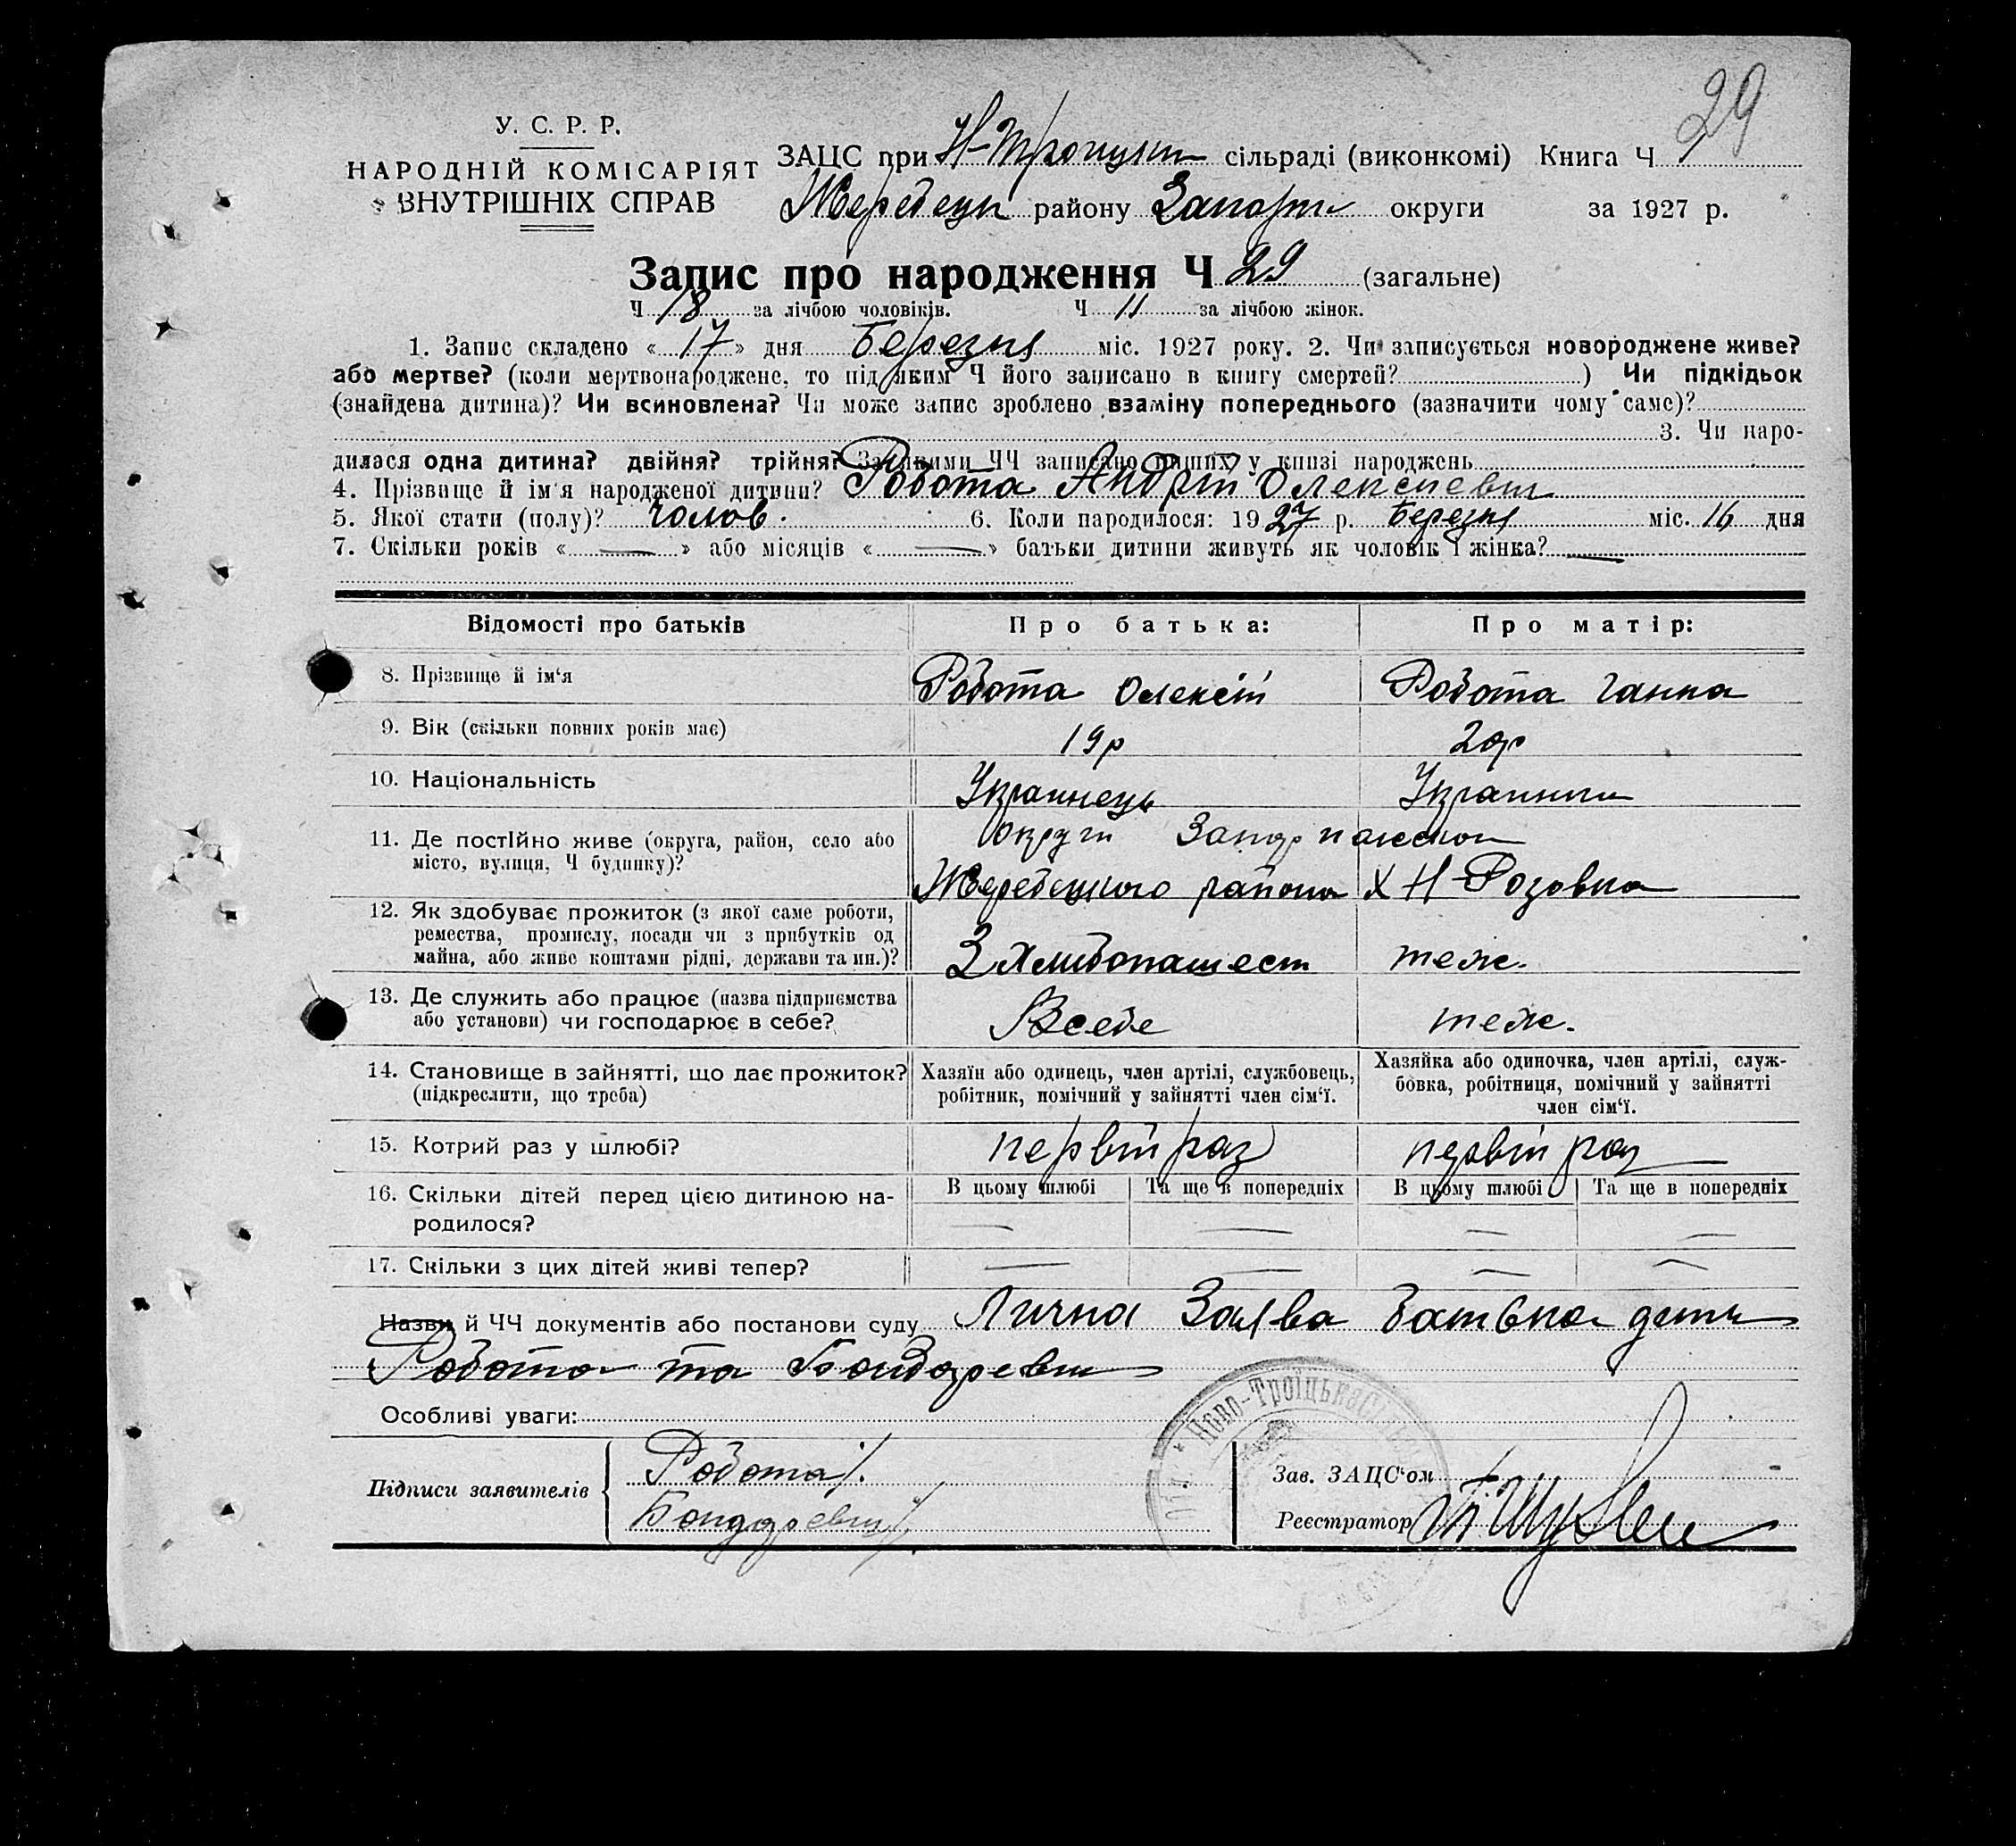 29
У. С. Р. Р.
НАРОДНІЙ КОМІСАРІЯТ
ВНУТРІШНІХ СПРАВ
ЗАЦС при Н-Троицкій сільраді (виконкомі) Книга Ч 1
Жеребецьк району Запоріж округи за 1927 р.
Запис про народження Ч 29 (загальне)
Ч 18 за лічбою чоловіків. Ч 11 за лічбою жінок.
1. Запис складено « 17 » дня Березня міс. 1927 року. 2. Чи записується новороджене живе?
або мертве? (коли мертвонароджене, то під яким Ч його записано в книгу смертей? ) Чи підкідьок
(знайдена дитина)? Чи всиновлена? Чи може запис зроблено взаміну попереднього (зазначити чому саме)?
3. Чи наро-
дилася одна дитина? двійня? трійня? За якими ЧЧ записано інших у книзі народжень
4. Прізвище й ім'я народженої дитини? Робота Андрій Олексієвич
5. Якої стати (полу)? Чолов. 6. Коли народилося: 1927 р. Березня міс. 16 дня
7. Скільки років « — » або місяців « — » батьки дитини живуть як чоловік і жінка? —
Відомості про батьків Про батька: Про матір:
8. Прізвище й ім'я Робота Олексій Робота Ганна
9. Вік (скільки повних років має) 19р 20р
10. Національність Українець Українка
11. Де постійно живе (округа, район, село або
місто, вулиця, Ч будинку)?
округи
Жеребецького района х Н-Розовка
12. Як здобуває прожиток (з якої саме роботи,
ремества, промислу, посади чи з прибутків од
майна, або живе коштами рідні, держави та ин.)?
З Хлибопашест теж.
13. Де служить або працює (назва підприємства
або установи) чи господарює в себе?
В себе теж.
14. Становище в зайнятті, що дає прожиток?
(підкреслити, що треба)
Хазяїн або одинець, член артілі, службовець,
робітник, помічний у зайнятті член сім'ї.
Хазяйка або одиночка, член артілі, служ-
бовка, робітниця, помічний у зайнятті
член сім'ї.
15. Котрий раз у шлюбі? первий раз первий раз
16. Скільки дітей перед цією дитиною на-
родилося?
В цьому шлюбі Та ще в попередніх В цьому шлюбі Та ще в попередніх
— — — —
17. Скільки з цих дітей живі тепер? — — — —
Назви й ЧЧ документів або постанови суду Лична Заява Батька
Робота та
Особливі уваги:
Підписи заявителів
Робота
Зав. ЗАЦС'ом
Реєстратор
Ново-Троїцька